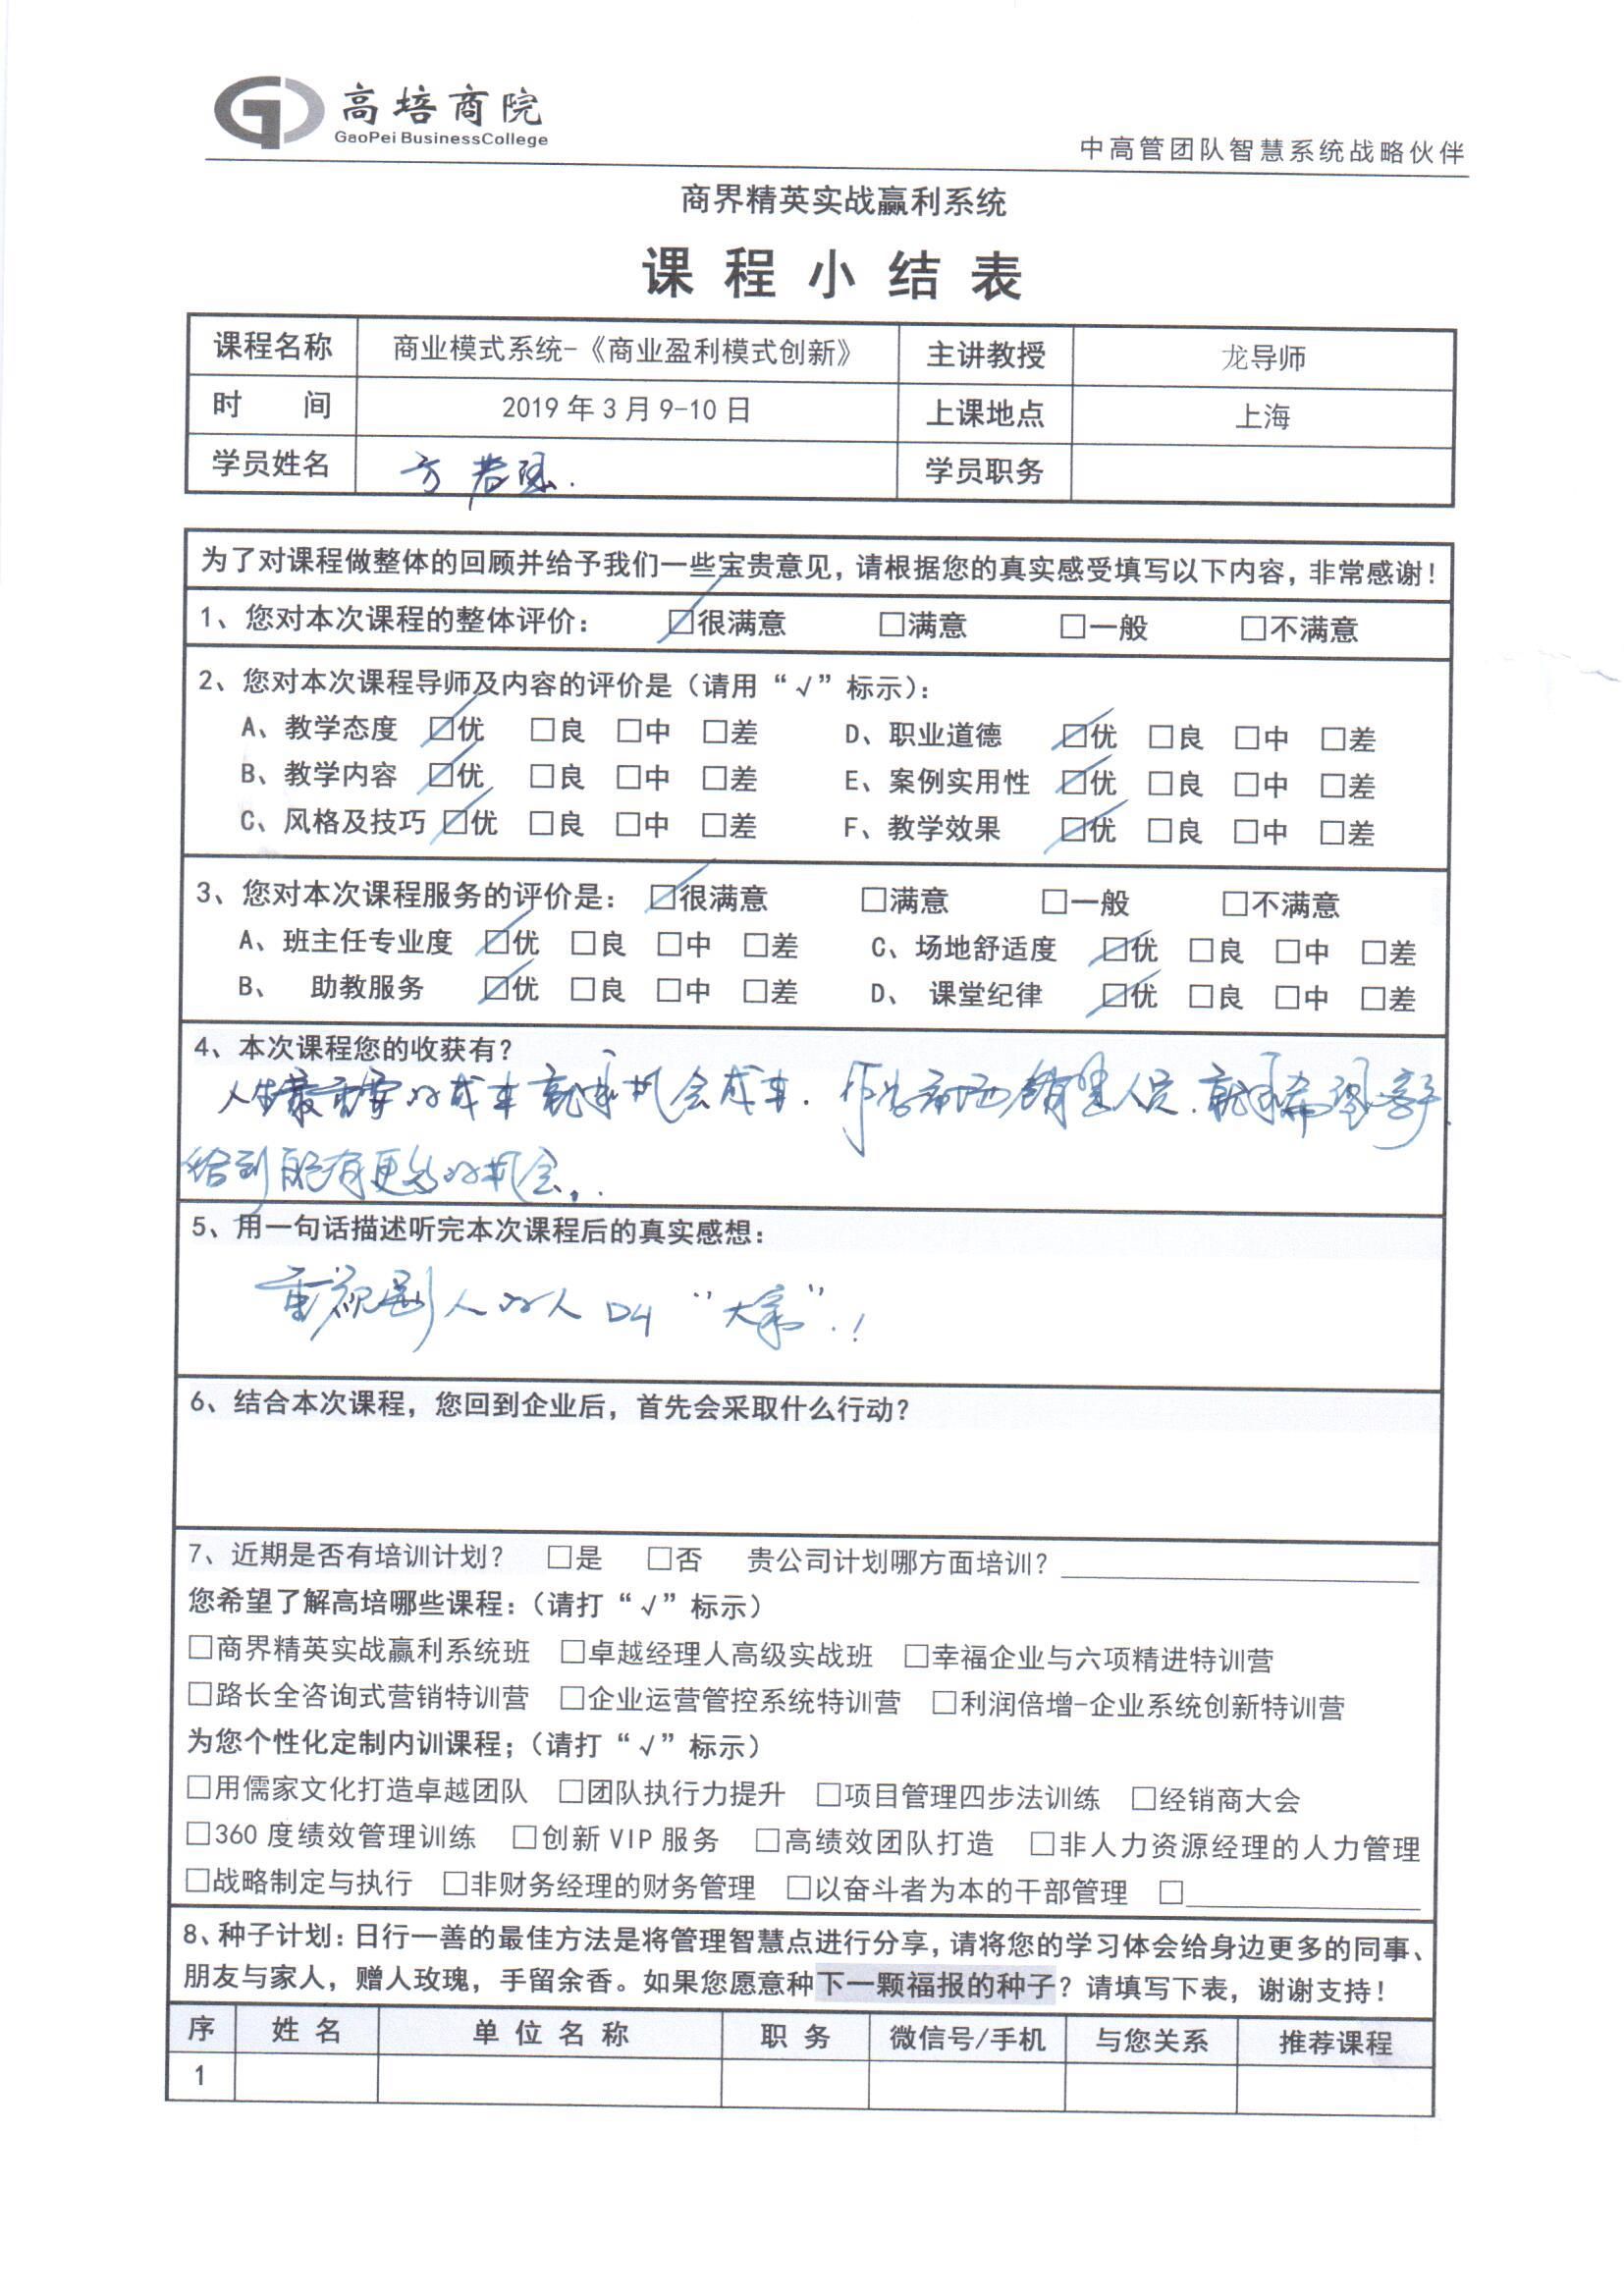 高培商院
GaoPei BusinessCollege
中高管团队智慧系统战略伙伴
商界精英实战赢利系统
课程小结表
课程名称 商业模式系统-《商业盈利模式创新》 主讲教授 龙导师
时 间 2019年3月9-10日 上课地点 上海
学员姓名 方 学员职务
为了对课程做整体的回顾并给予我们一些宝贵意见，请根据您的真实感受填写以下内容，非常感谢！
1、您对本次课程的整体评价： ☑很满意 □满意 □一般 □不满意
2、您对本次课程导师及内容的评价是（请用“√”标示）：
A、教学态度 ☑优 □良 □中 □差 D、职业道德 ☑优 □良 □中 □差
B、教学内容 ☑优 □良 □中 □差 E、案例实用性 ☑优 □良 □中 □差
C、风格及技巧 ☑优 □良 □中 □差 F、教学效果 ☑优 □良 □中 □差
3、您对本次课程服务的评价是： ☑很满意 □满意 □一般 □不满意
A、班主任专业度 ☑优 □良 □中 □差 C、场地舒适度 ☑优 □良 □中 □差
B、 助教服务 ☑优 □良 □中 □差 D、 课堂纪律 ☑优 □良 □中 □差
4、本次课程您的收获有？
人生最重要的成本就是机会成本．作为 销售人员．就是希望客户
给到能有更多的机会．
5、用一句话描述听完本次课程后的真实感想：
重视别人的人叫“大家”．！
6、结合本次课程，您回到企业后，首先会采取什么行动？
7、近期是否有培训计划？ □是 □否 贵公司计划哪方面培训？
您希望了解高培哪些课程：（请打“√”标示）
□商界精英实战赢利系统班 □卓越经理人高级实战班 □幸福企业与六项精进特训营
□路长全咨询式营销特训营 □企业运营管控系统特训营 □利润倍增-企业系统创新特训营
为您个性化定制内训课程；（请打“√”标示）
□用儒家文化打造卓越团队 □团队执行力提升 □项目管理四步法训练 □经销商大会
□360度绩效管理训练 □创新VIP服务 □高绩效团队打造 □非人力资源经理的人力管理
□战略制定与执行 □非财务经理的财务管理 □以奋斗者为本的干部管理 □
8、种子计划：日行一善的最佳方法是将管理智慧点进行分享，请将您的学习体会给身边更多的同事、
朋友与家人，赠人玫瑰，手留余香。如果您愿意种下一颗福报的种子？请填写下表，谢谢支持！
序 姓名 单位名称 职务 微信号/手机 与您关系 推荐课程
1